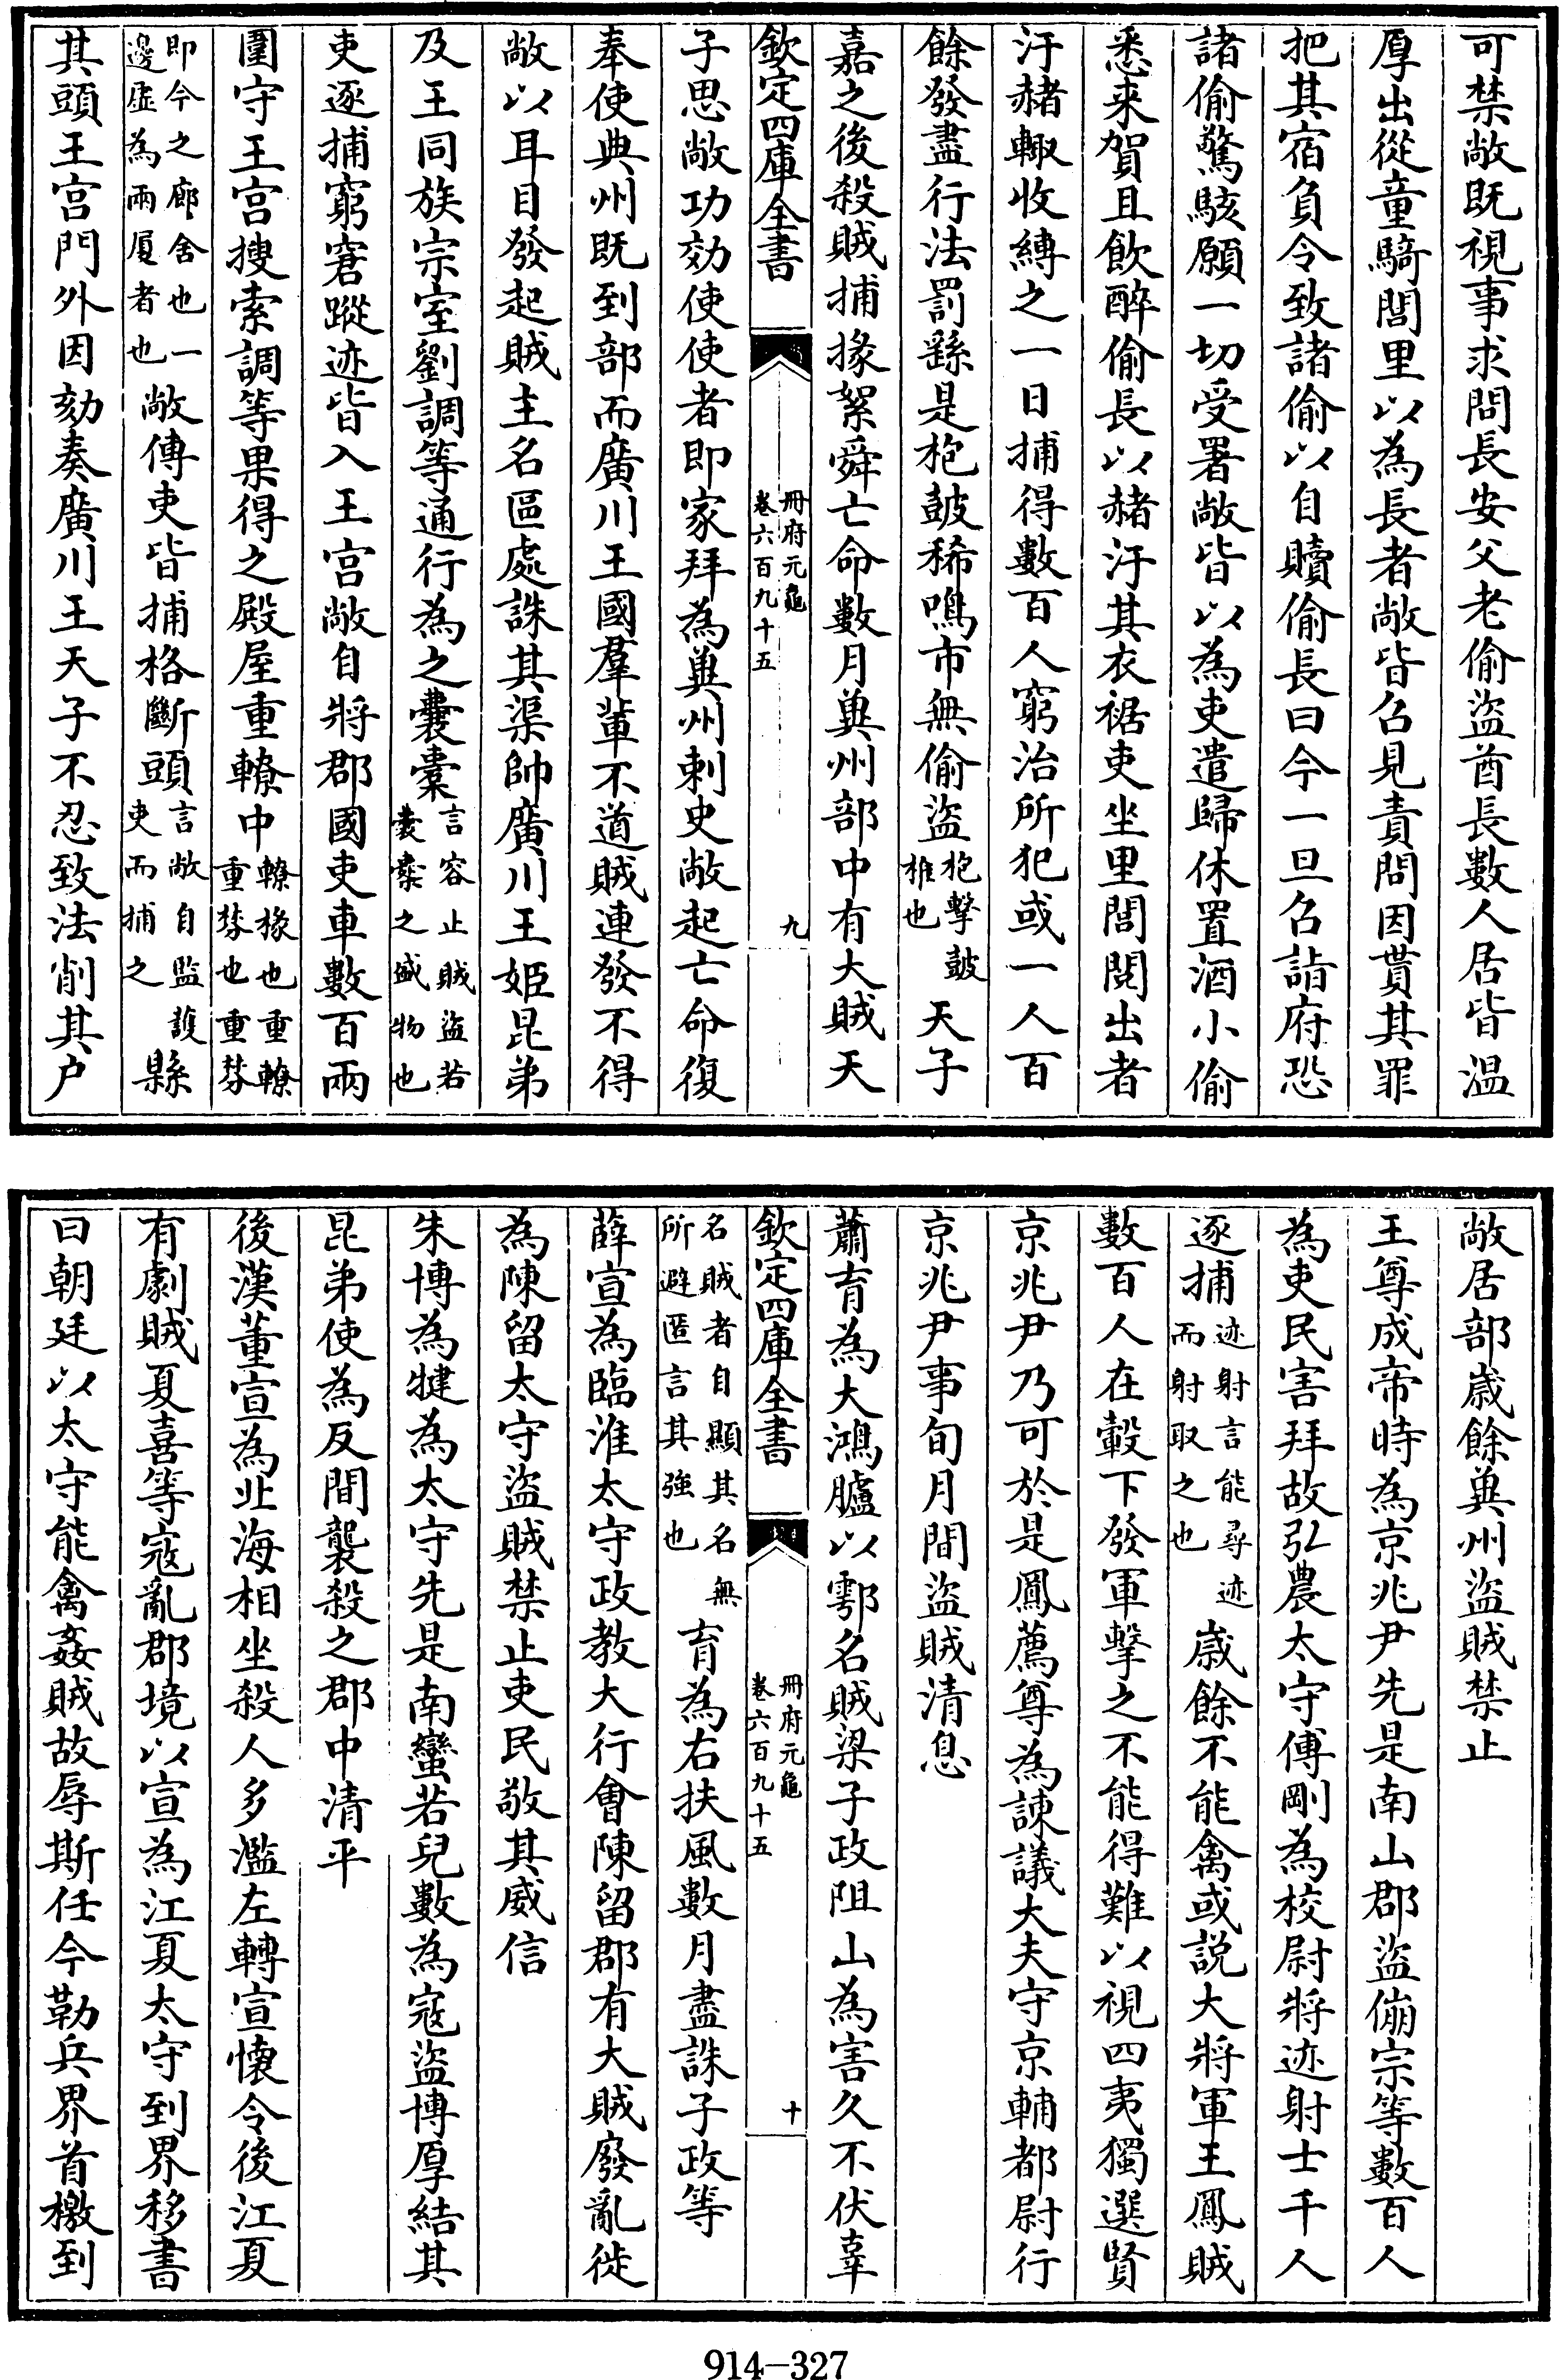 可禁敞既視事求問長安父老偷盜酋長數人居皆温
厚出從童騎閭里以為長者敞皆召見責問因貰其罪
把其宿負令致諸偷以自贖偷長曰今一旦召詣府恐
諸偷驚駭願一切受署敞皆以為吏遣歸休置酒小偷
悉来賀且飲醉偷長以赭汙其衣裾吏坐里閭閲出者
汙赭輙收縛之一日捕得數百人窮治所犯或一人百
餘發盡行法罰繇是枹鼓稀鳴市無偷盜枹擊鼓椎也天子
嘉之後殺賊捕掾絮舜亡命數月兾州部中有大賊天
欽定四庫全書 冊府元龜卷六百九十五 九
子思敞功効使使者即家拜為兾州刺史敞起亡命復
奉使典州既到部而廣川王國羣軰不道賊連發不得
敞以耳目發起賊主名區處誅其渠帥廣川王姬昆弟
及王同族宗室劉調等通行為之囊橐言容止賊盜若囊橐之盛物也
吏逐捕窮窘蹤迹皆入王宫敞自將郡國吏車數百兩
圍守王宫搜索調等果得之殿屋重轑中轑椽也重轑重棼也重棼
即今之廊舍也一邊虚為兩厦者也敞傅吏皆捕格斷頭言敞自監護吏而捕之縣
其頭王宫門外因劾奏廣川王天子不忍致法削其户
敞居部歳餘兾州盜賊禁止
王尊成帝時為京兆尹先是南山郡盜傰宗等數百人
為吏民害拜故弘農太守傅剛為校尉將迹射士千人
逐捕迹射言能尋迹而射取之也歳餘不能禽或説大將軍王鳳賊
數百人在轂下發軍擊之不能得難以視四夷獨選賢
京兆尹乃可於是鳳薦尊為諫議大夫守京輔都尉行
京兆尹事旬月間盜賊清息
蕭育為大鴻臚以鄠名賊梁子政阻山為害久不伏辜
欽定四庫全書 冊府元龜卷六百九十五 十
名賊者自顯其名無所避匿言其強也育為右扶風數月盡誅子政等
薛宣為臨淮太守政教大行會陳留郡有大賊廢亂徙
為陳留太守盜賊禁止吏民敬其威信
朱博為犍為太守先是南蠻若兒數為寇盜博厚結其
昆弟使為反間襲殺之郡中清平
後漢董宣為北海相坐殺人多濫左轉宣懷令後江夏
有劇賊夏喜等寇亂郡境以宣為江夏太守到界移書
曰朝廷以太守能禽姦賊故辱斯任今勒兵界首檄到
914-327